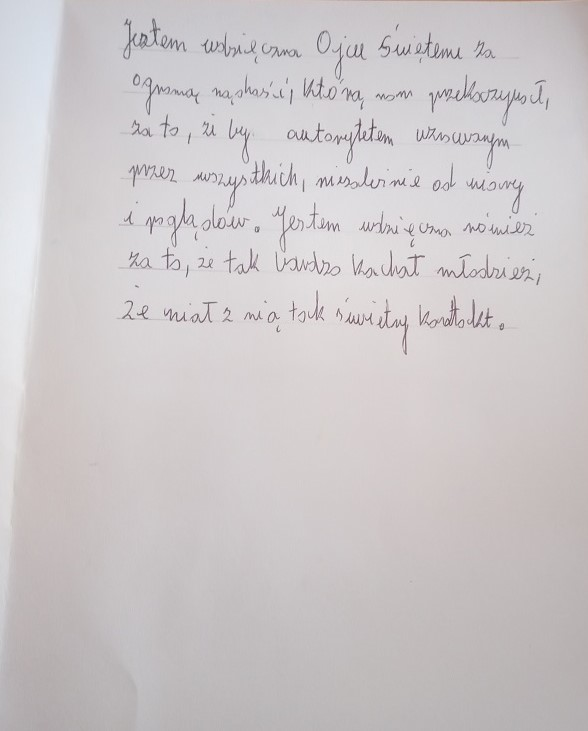 Jestem wdzięczna Ojcu Świętemu za
ogromną mądrość, którą nam przekazywał,
za to, że był autorytetem uznawanym
przez wszystkich, niezależnie od wiary
i poglądów. Jestem wdzięczna również
za to, że tak bardzo kochał młodzież,
że miał z nią tak świetny kontakt.